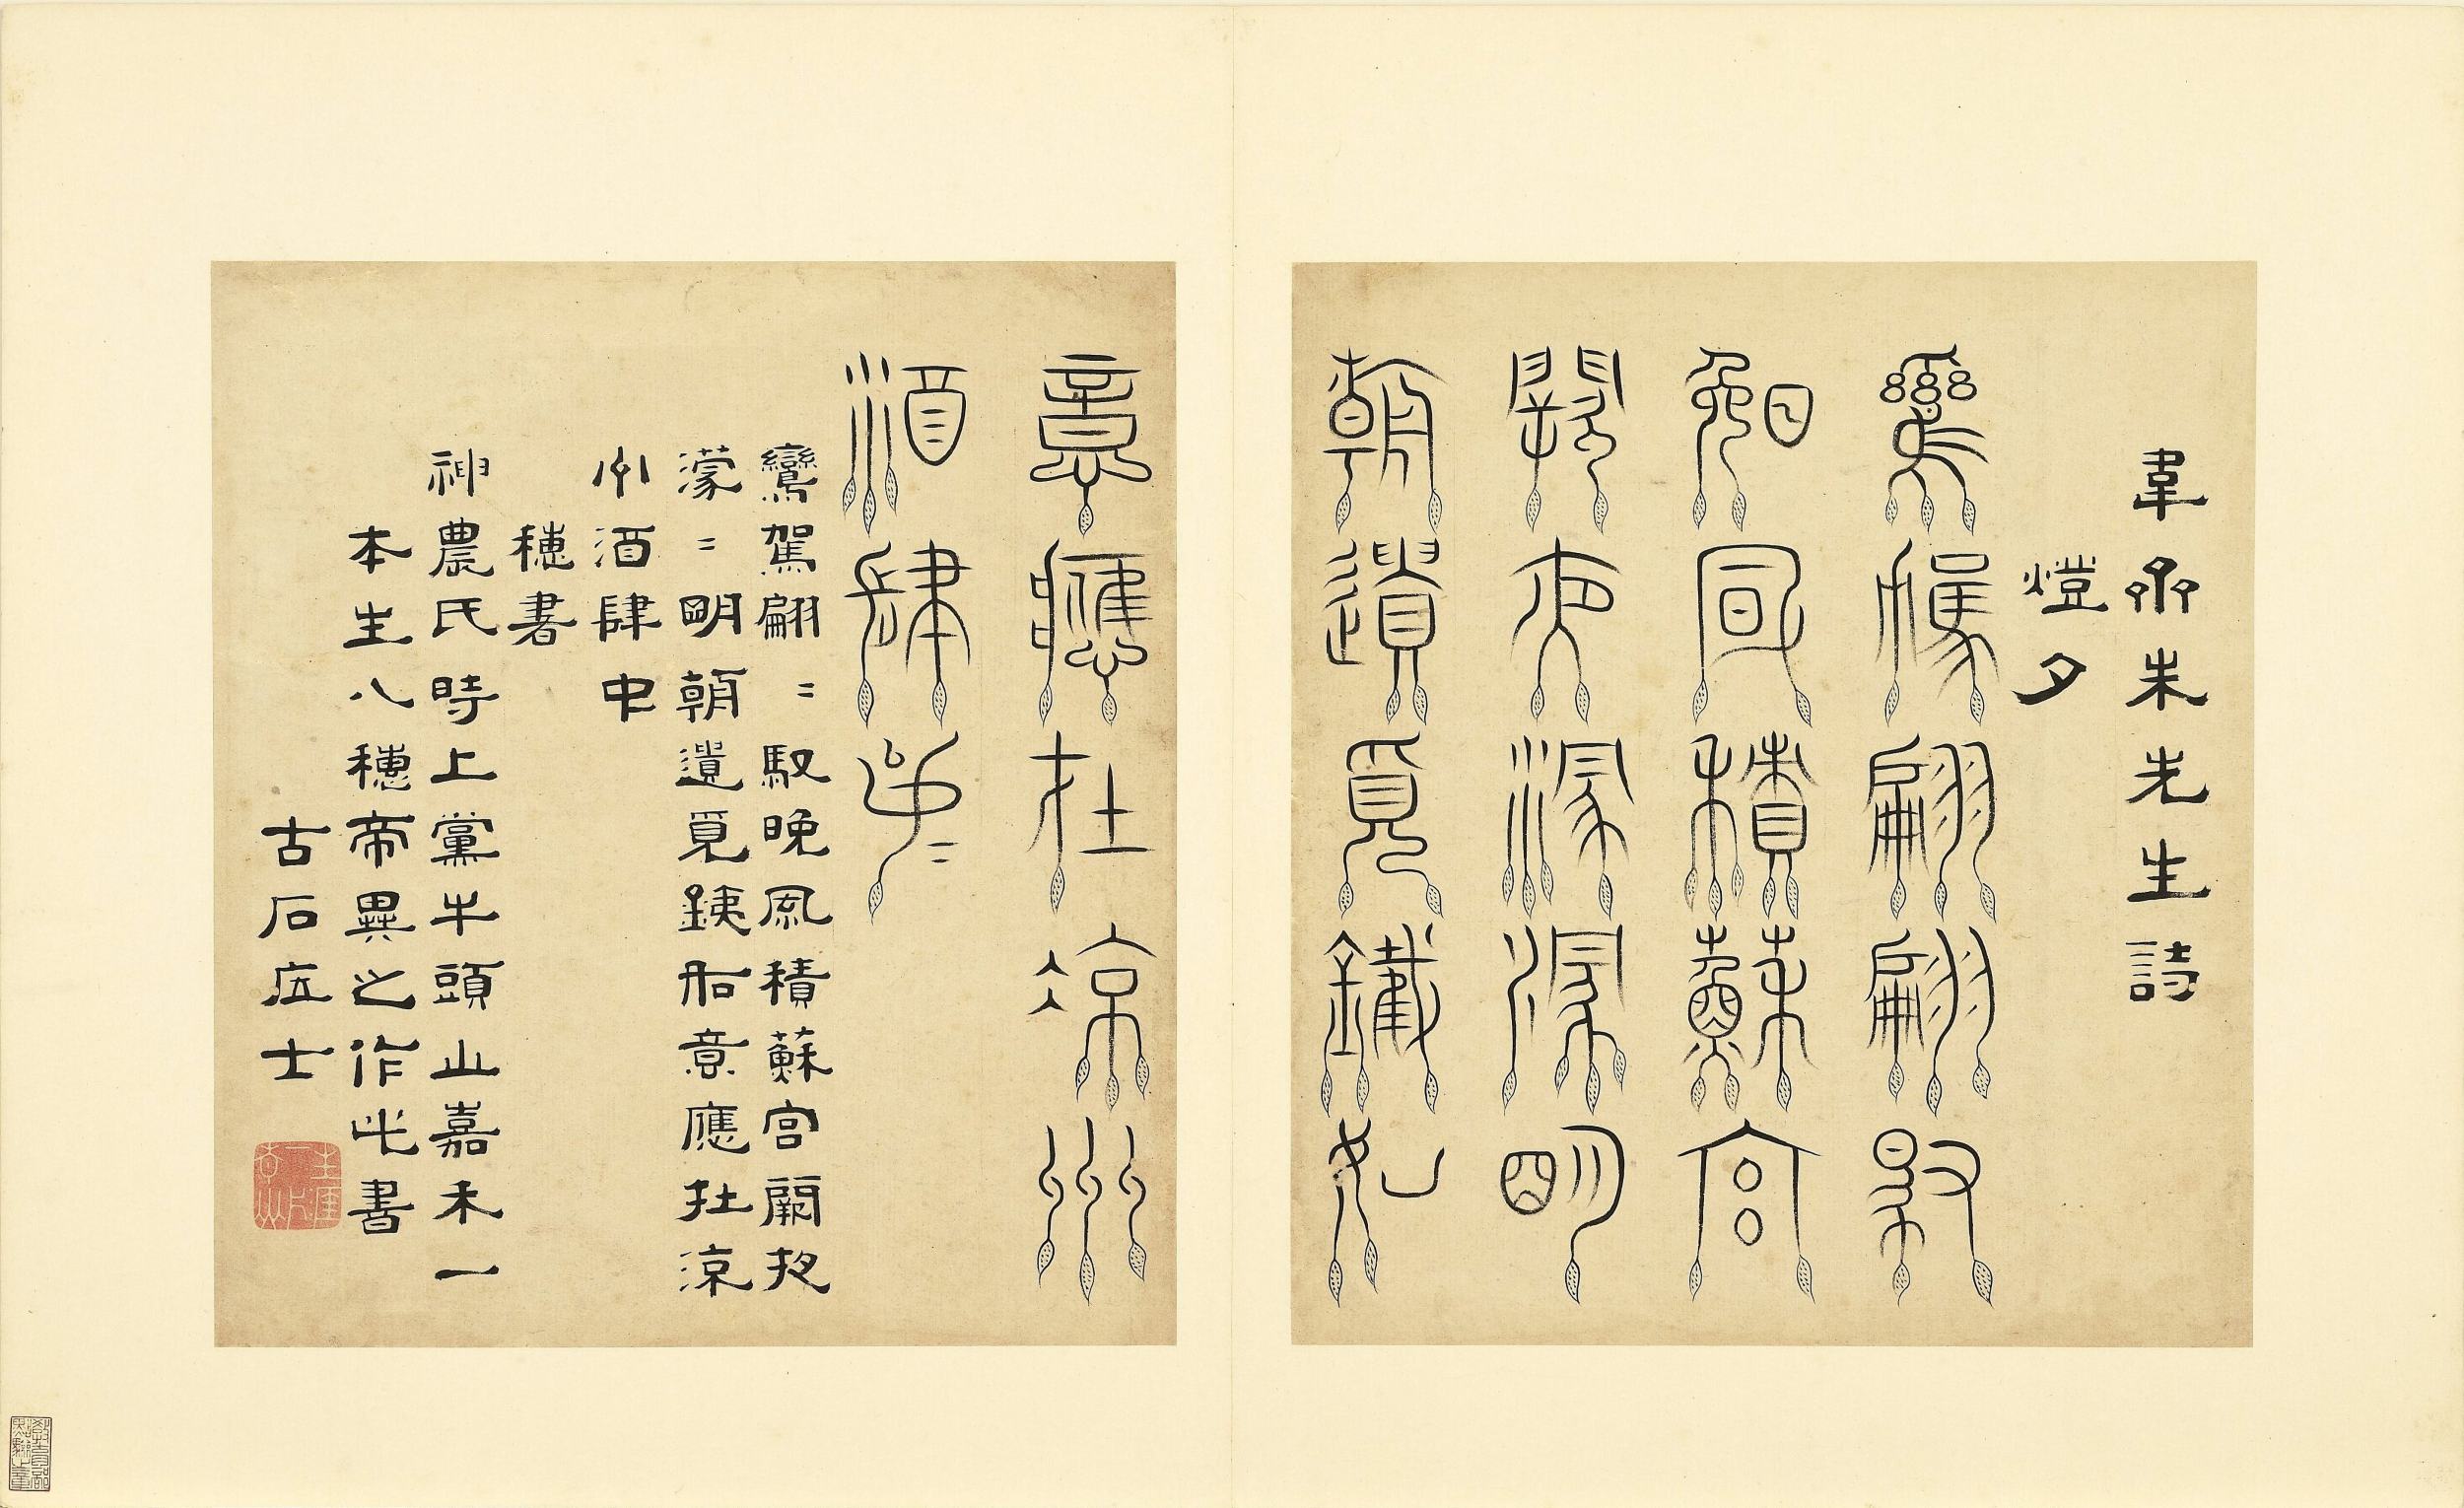 韋齋朱先生詩
燈夕
鸞駕翩翩馭
晚風積蘇宮
闕夜濛濛明
朝遺覓鐵如
意應在涼州
酒肆中
鸞駕翩〻馭晚風積蘇宮闕夜
濛〻明朝遺覓銕如意應在涼
州酒肆中
穗書
神農氏時上黨牛頭山嘉禾一
本生八穗帝異之作此書
古石士